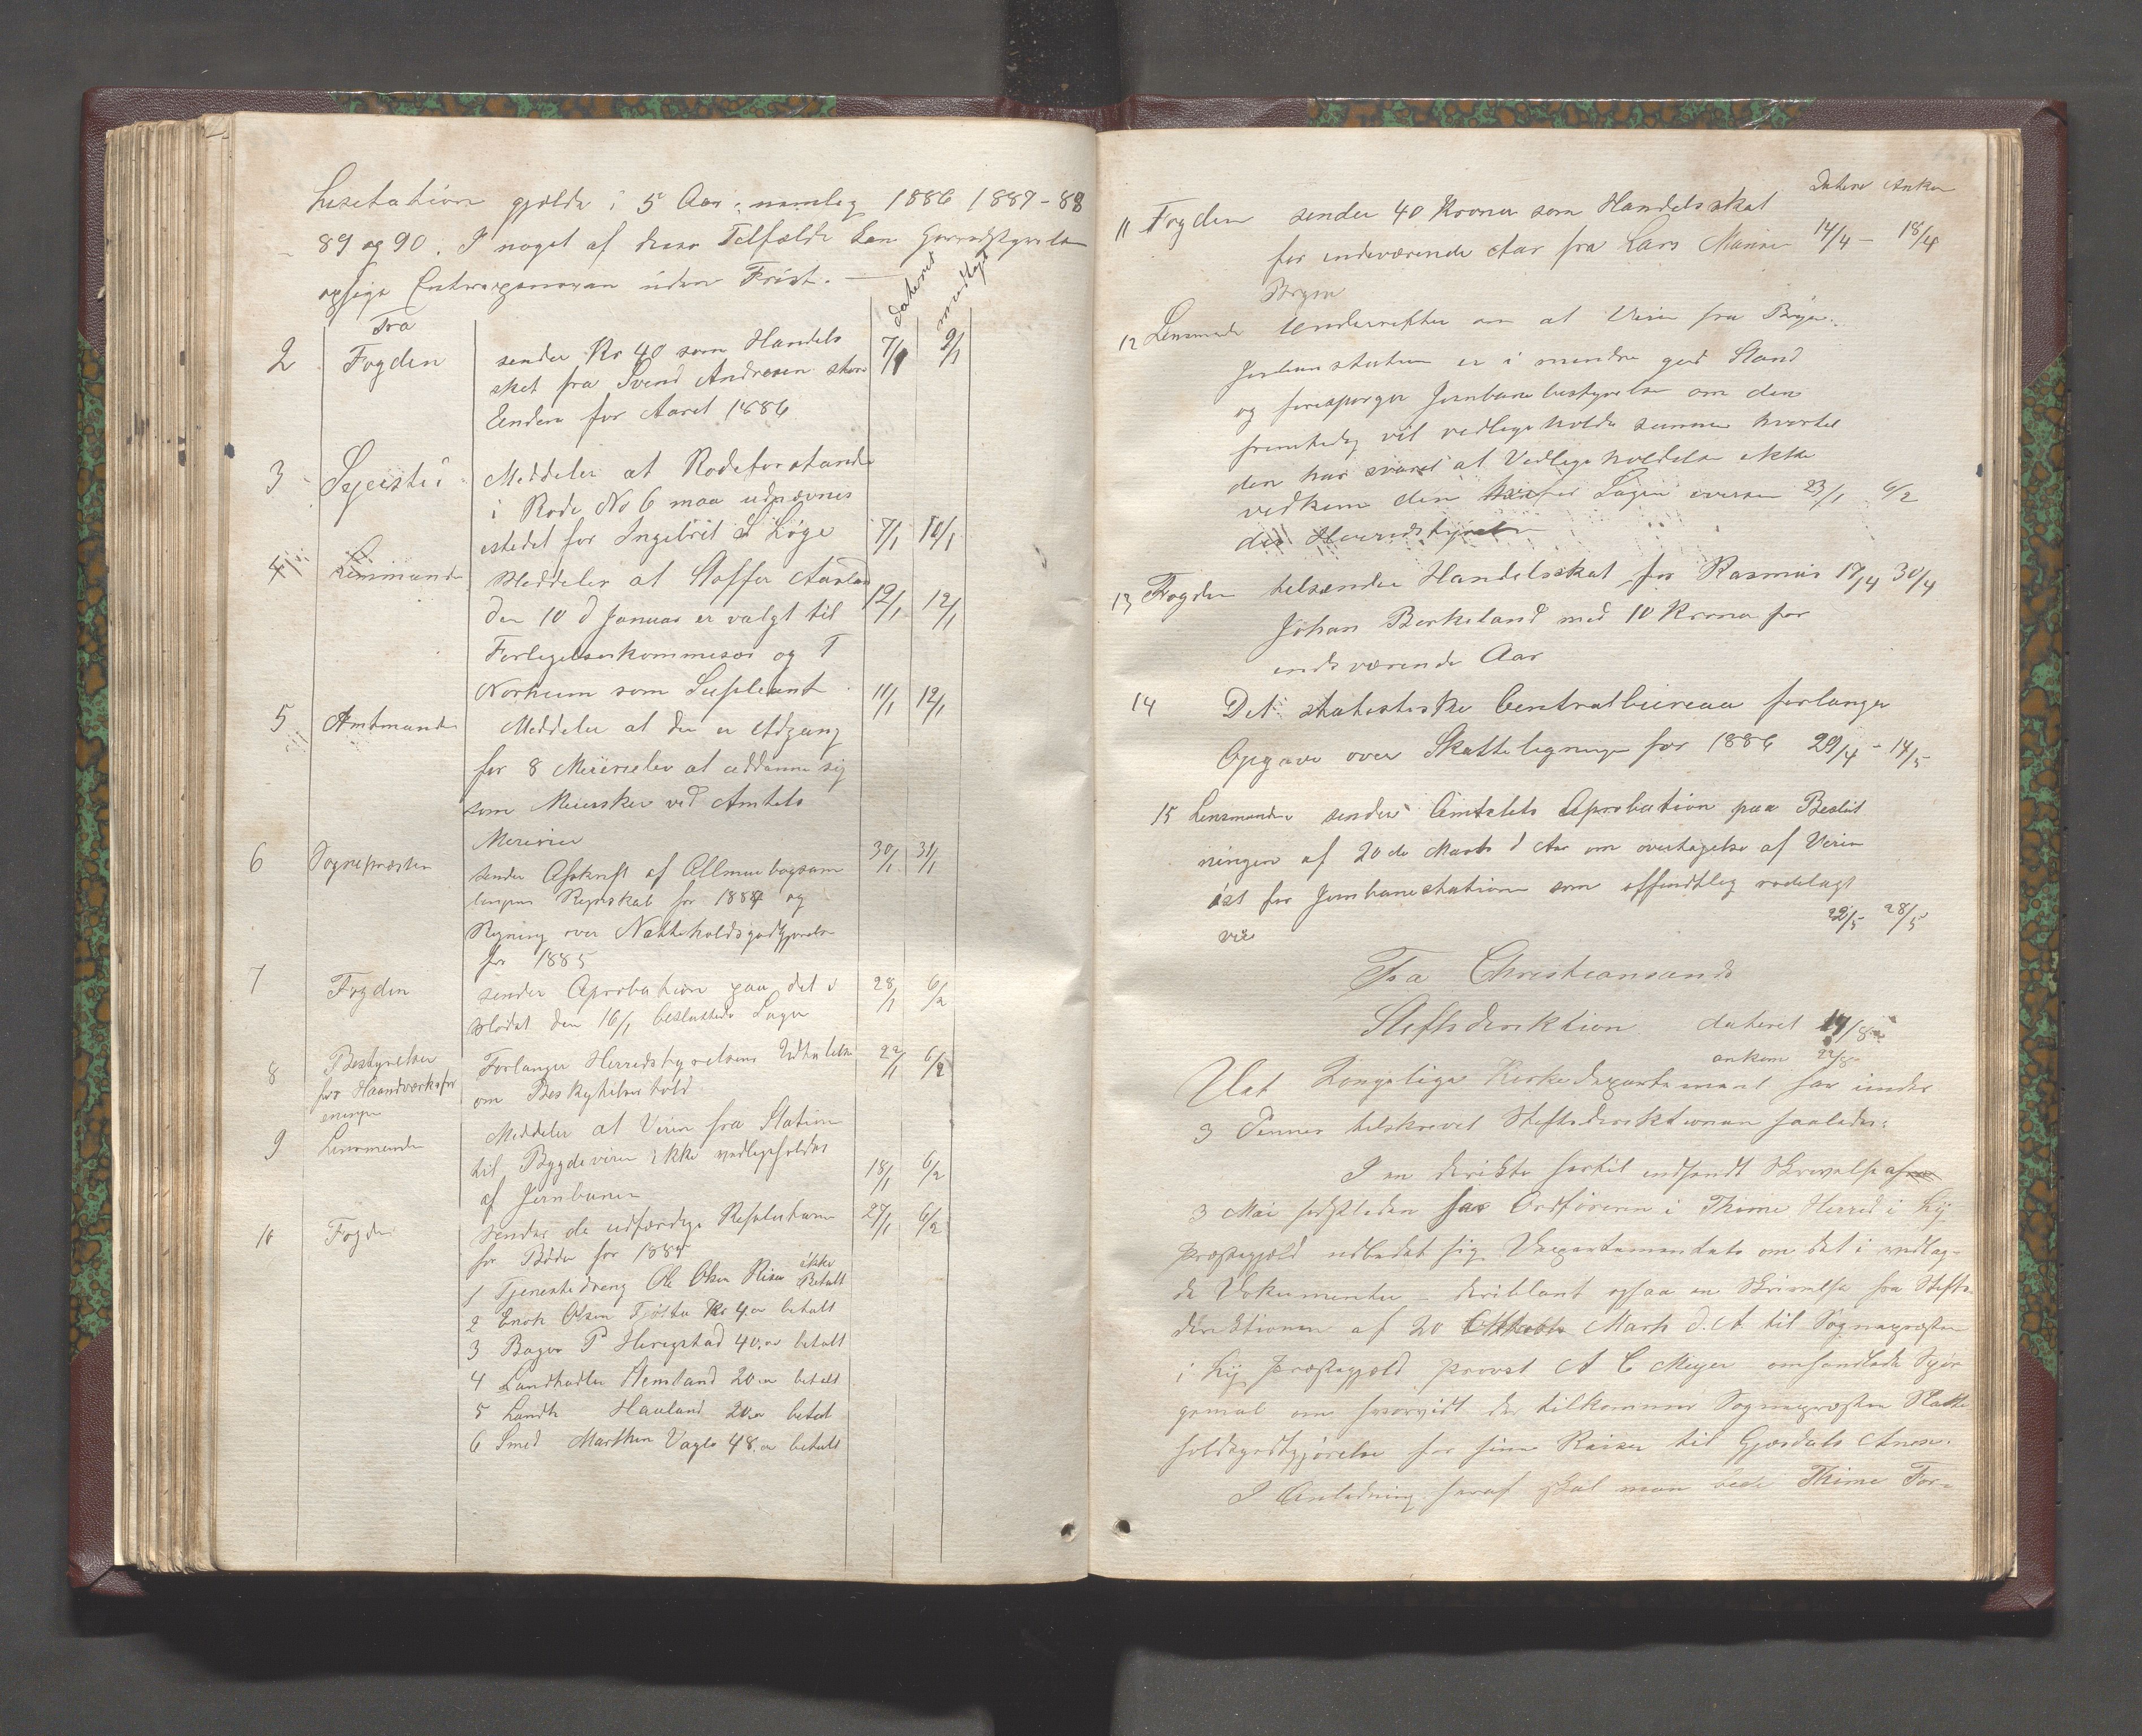 Lisetation gjælder i 5 Aar: nemleg 1886 1887-88
89 og 90. I noget af disse Telfælde kan Herredstyrelsen
opsige Entreprenøren uden Frist.
Fra dateret modtaget
2 Fogden sender Kr 40 som Handels 7/1 9/1
skat fra Svend Andresen
Enden for Aaret 1886
3 Meddeler at Rodeforstander
i Rode No 6 maa udnævnes
istedet for Ingebrit Løge 7/1 10/1
4 Lensmanden Meddeler at Stoffer Aarland
den 10 d Januar er valgt til 12/1 12/1
Forlegelseskommesær og T
Norheim som Supleant
5 Amtmanden Meddeler at der er Adgang 11/1 12/1
for 8 Meierielev at uddanne sig
som Meiersker ved Amtets
Meierier
6 Sognepræsten sender Afskrift af Allmuebogsam 30/1 31/1
lingens Regnskab for 1884 og
Regning over Natteholdsgodtgjørelse
for 1885
7 Fogden sender Aprobation paa det i 28/1 6/2
Mødet den 16/1 besluttede Lager
8 Bestyrelsen Forlanger Herredstyrelsens Udtalelse 22/1 6/2
for Haandverksfor om Beskyttelsestold
eningen
9 Lensmanden Meddeler at Veien fra Station
til Bygdeveien ikke vedlegeholdes 18/1 6/2
af Jernbanen
10 Fogden sender de udfærdige Resolutioner 27/1 6/2
for Bøder for 1885
1 Tjenestedreng Ole Olsen ikke Betalt
2 Enok Olsen Kr 4.00 betalt
3 Bager P Herigstad 40.00 betalt
4 Landhadler Aemland 20.00 betalt
5 Landh Hauland 20.00 betalt
6 Smed Marthen Vagle 48.00 betalt
Dateret Ankom
11 Fogden sender 40 Kroner som Handelsskat
for indeværende Aar fra Lars 14/4 - 18/4
Bryne
12 Lensmanden Underretter om at Veien fra Bryne
Jernbanstation er i mendre god Stand
og forespørger Jernbanebestyrelse om den
fremtedeg vil vedlegeholde samme hvortil
den har svaret at Vedlegeholdelse ikke
vedkom den Sagen oversen 23/1 6/2
des Herredstyrelse
13 Fogden telsender Handelsskat for Rasmus 17/4 30/4
Johan Berkeland med 10 Kroner for
indeværende Aar
14 Det statestiske Centralbureau forlanger
Opgave over Skattelegninge for 1886 29/4 - 14/5
15 Lensmanden sender Amtets Aprobation paa Beslut
ningen af 20de Marts d Aar om overtagelse af Veien
øst for Jernbanestationen som offendtleg rodelagt
vei 22/5 28/5
Fra Christiansands
Steftsderektion dateret 14/8
ankom 22/8
Det Kongelige Kirkedepartement har under
3 Dennes telskrevet Steftsderektionen saaledes:
I en derekte hertil indsendt Skrevelse af
3 Mai sedstleden har Ordføreren i Thime Herred i Ly
Præstegjeld udbedet sig Departementets om det i vedlag-
de Dokumenter - deriblant ogsaa en Skrivelse fra Stefts
derektionen af 20 Marts d. A. til Sognepræsten
i Ly Præstegjeld provst A C Meyer omhandlede Spør
gsmal om hvorvidt der tilkommer Sognepræsten Natte
holdsgodtgjørelse for sine Reiser til Gjesdals Anex.
I Anledning heraf skal man bede Thime For-